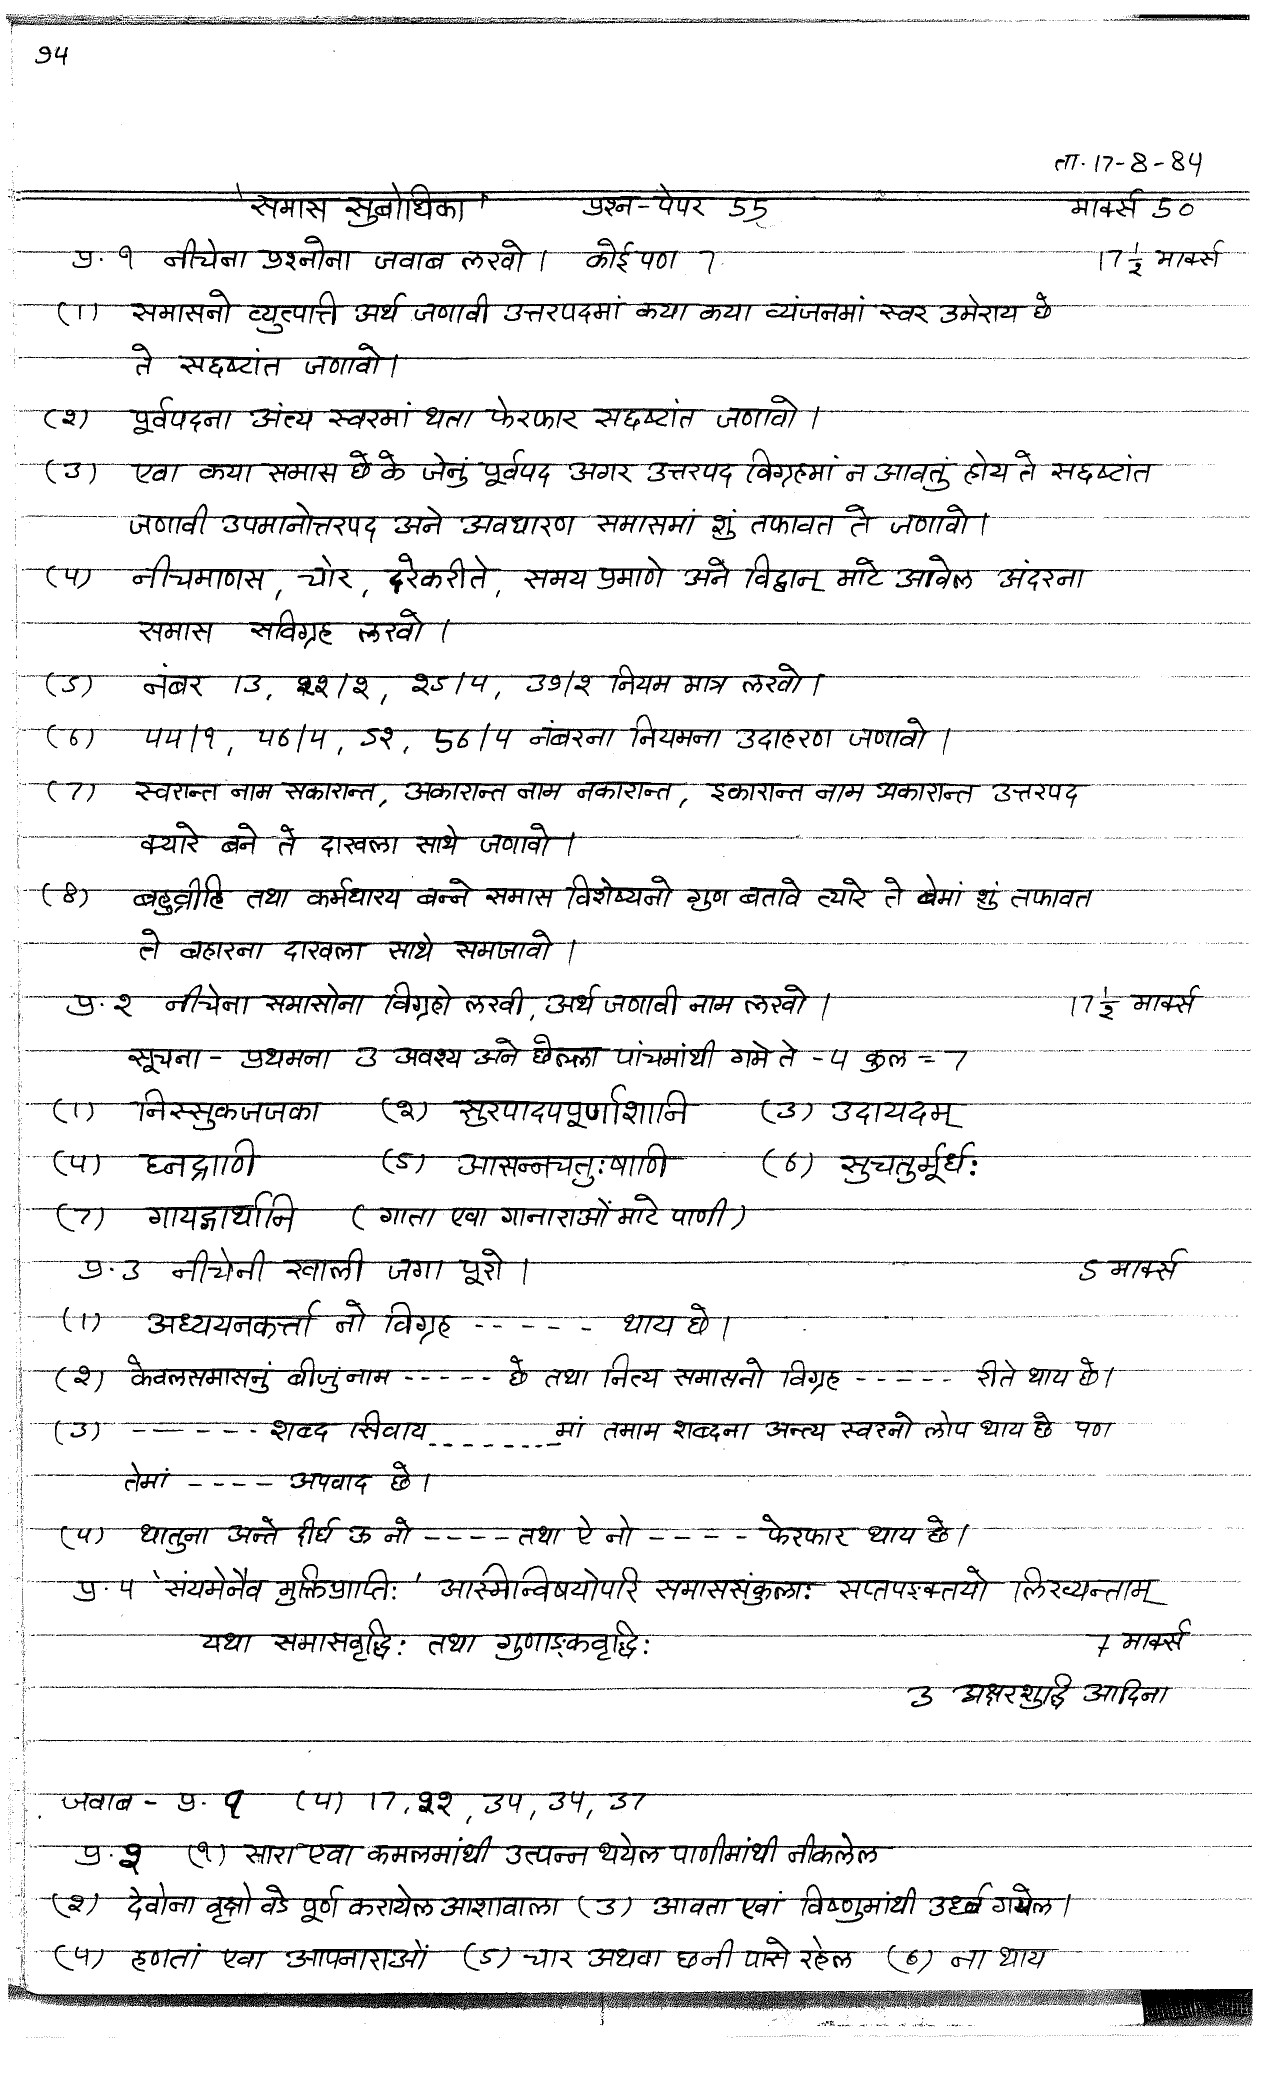 १५
ता. 17-8-84
'समास सुबोधिका' प्रश्न-पेपर 55 मार्क्स 50
प्र. १ नीचेना प्रश्नोना जवाब लखो। कोई पण 7 17 1/2 मार्क्स
(1) समासनो व्युत्पात्ति अर्थ जणावी उत्तरपदमां कया कया व्यंजनमां स्वर उमेराय छे
ते सदृष्टांत जणावो।
(२) पूर्वपदना अंत्य स्वरमां थता फेरफार सदृष्टांत जणावो।
(3) एवा कया समास छे के जेनुं पूर्वपद अगर उत्तरपद विग्रहमां न आवतुं होय ते सदृष्टांत
जणावी उपमानोत्तरपद अने अवधारण समासमां शुं तफावत ते जणावो।
(५) नीचमाणस, चोर, दरेकरीते, समय प्रमाणे अने विद्वान् माटे आवेल अंदरना
समास सविग्रह लखो।
(5) नंबर 13, २२/२, २5/५, 3१/२ नियम मात्र लखो।
(6) ५५/१, ५6/५, 5२, 56/५ नंबरना नियमना उदाहरण जणावो।
(7) स्वरान्त नाम सकारान्त, अकारान्त नाम नकारान्त, इकारान्त नाम अकारान्त उत्तरपद
क्यारे बने ते दाखला साथे जणावो।
(8) बहुव्रीहि तथा कर्मधारय बन्ने समास विशेष्यनो गुण बतावे त्यारे ते बेमां शुं तफावत
ते बहारना दाखला साथे समजावो।
प्र. २ नीचेना समासोना विग्रहो लखी, अर्थ जणावी नाम लखो। 17 1/2 मार्क्स
सूचना - प्रथमना 3 अवश्य अने छेल्ला पांचमांथी गमे ते -५ कुल = 7
(1) निस्सुकजजका (२) सुरपादपपूर्णाशानि (3) उदायदम्
(५) घ्नद्राणि (5) आसन्नचतुःषाणि (6) सुचतुर्मूर्धः
(7) गायद्गार्थानि (गाता एवा गानाराओं माटे पाणी)
प्र. 3 नीचेनी खाली जगा पूरो। 5 मार्क्स
(1) अध्ययनकर्त्ता नो विग्रह ----- थाय छे।
(२) केवलसमासनुं बीजुंनाम ----- छे तथा नित्य समासनो विग्रह ----- रीते थाय छे।
(3) ------ शब्द सिवाय ------- मां तमाम शब्दना अन्त्य स्वरनो लोप थाय छे पण
तेमां ---- अपवाद छे।
(५) धातुना अन्ते दीर्घ ऊ नो ---- तथा ऐ नो ---- फेरफार थाय छे।
प्र. ५ 'संयमेनैव मुक्तिप्राप्तिः' आस्मिन्विषयोपरि समाससंकुलाः सप्तपङ्क्तयो लिख्यन्ताम्
यथा समासवृद्धिः तथा गुणाङ्कवृद्धिः 7 मार्क्स
3 अक्षरशुद्धि आदिना
जवाब - प्र. १ (५) 17, २२, 3५, 3५, 37
प्र. २ (१) सारा एवा कमलमांथी उत्पन्न थयेल पाणीमांथी नीकलेल
(२) देवोना वृक्षो वडे पूर्ण करायेल आशावाला (3) आवता एवां विष्णुमांथी उर्ध्व गयेल।
(५) हणतां एवा आपनाराओं (5) चार अथवा छनी पासे रहेल (6) ना थाय